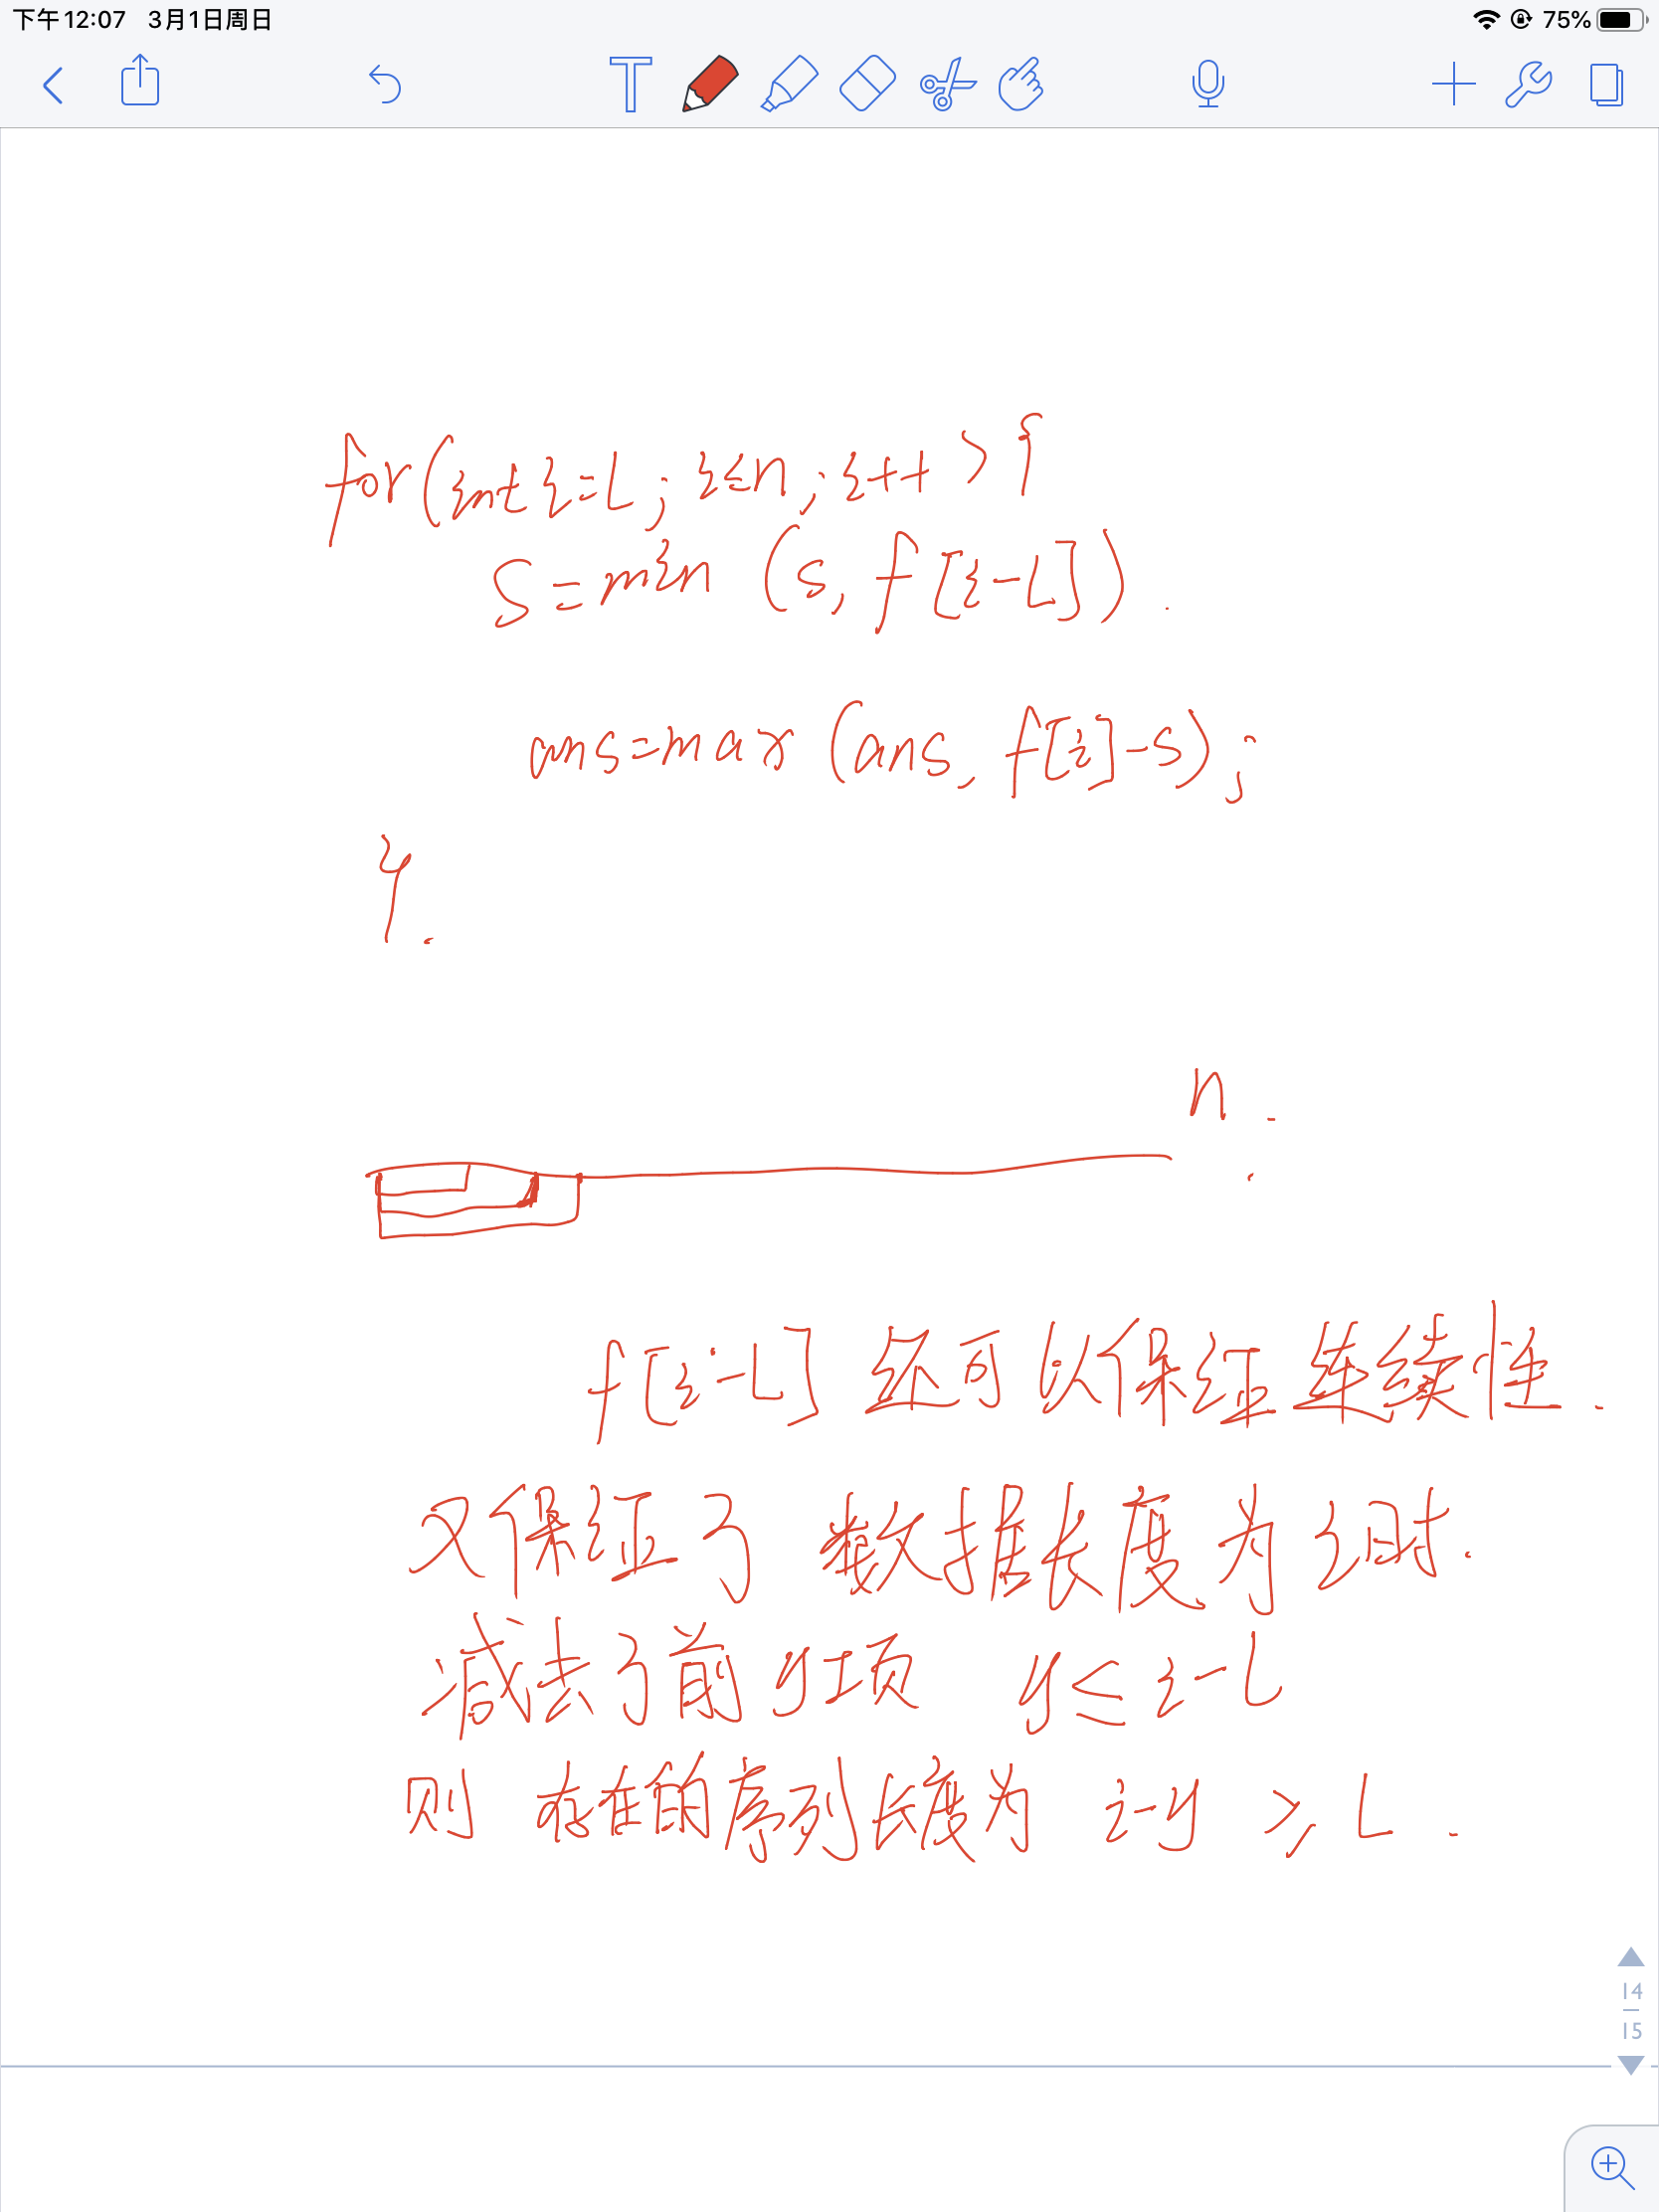 下午12:07 3月1日周日 75%
for(int i=L; i≤n; i++){
s=min(s, f[i-L]).
ans=max(ans, f[i]-s);
}.
n.
f[i-L] 还可以保证连续性.
又保证了 数据长度为i时.
减去了前y项 y≤i-L
则 存在的序列长度为 i-y ≥ L.
14
15